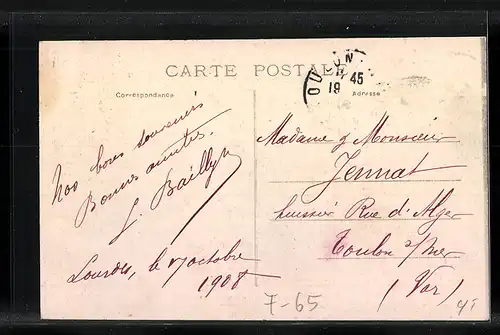 CARTE POSTALE
Correspondance
Adresse
TOULON
45
19
Nos bons souvenirs
Bonnes amitiés.
J. Bailly
Lourdes, le 7 octobre
1908
Madame & Monsieur
Jennat
huissier Rue d'Alger
Toulon s/mer
(Var)
7-65